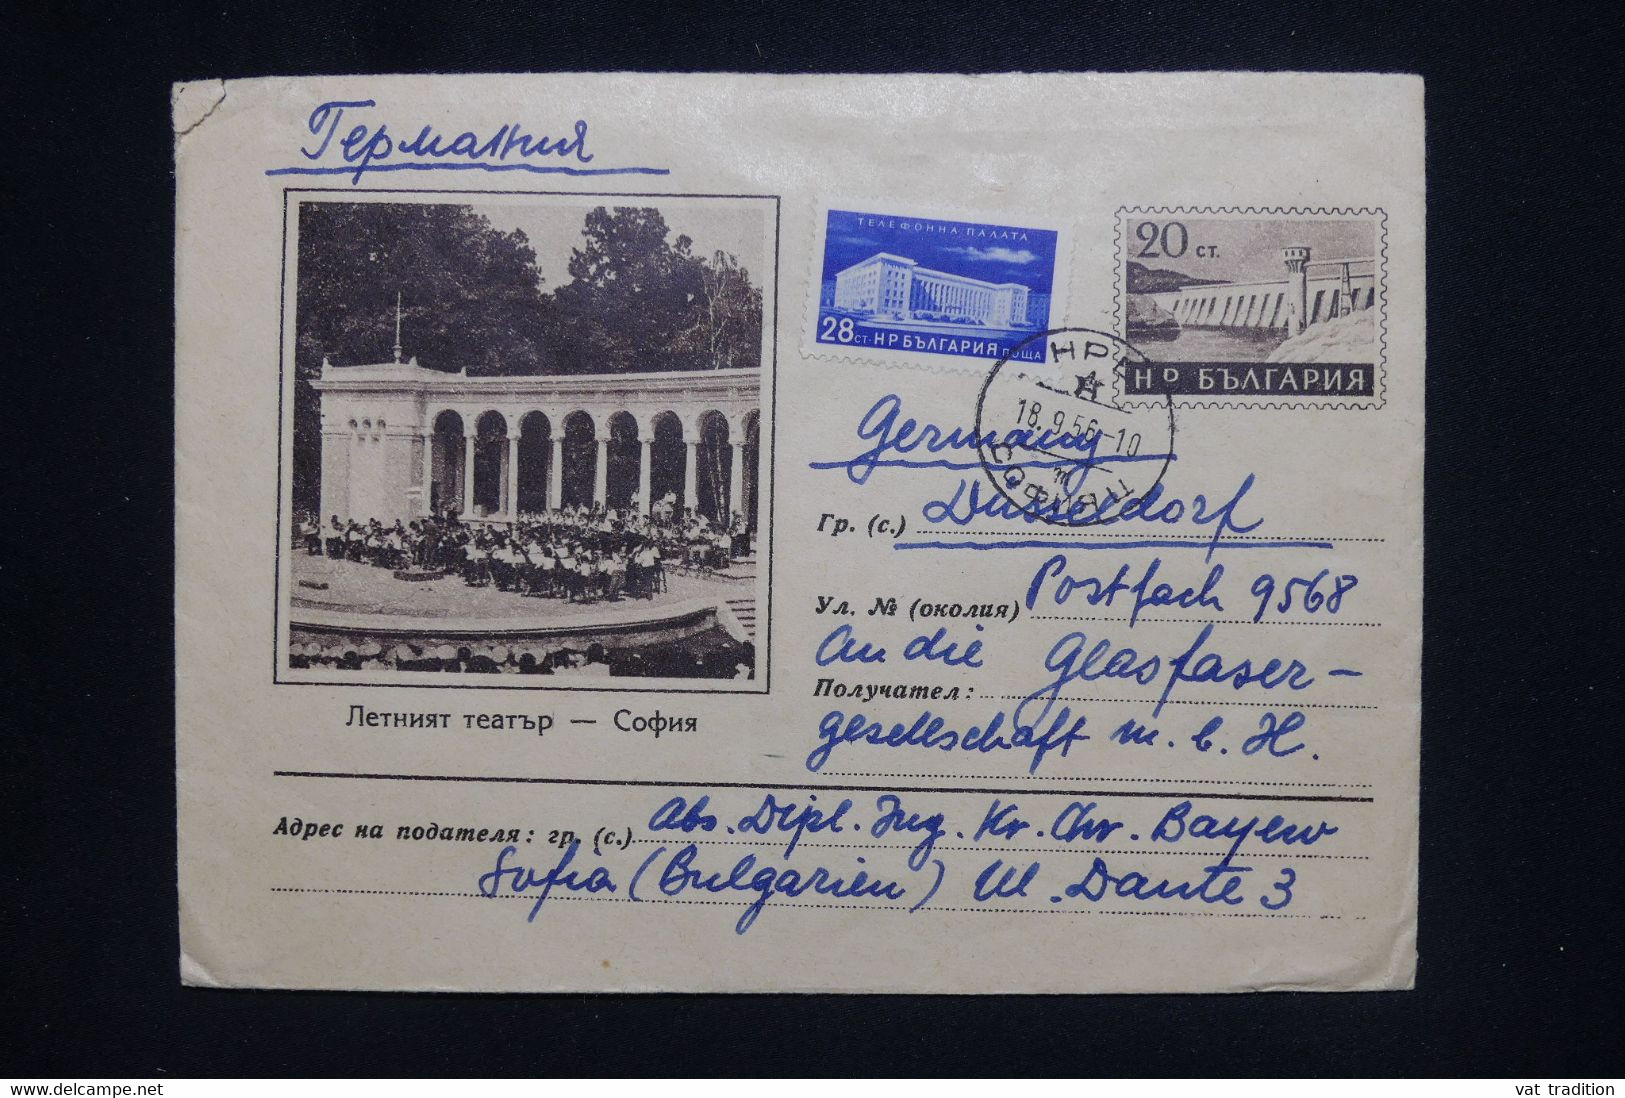 Германия
ТЕЛЕФОННА ПАЛАТА
28 СТ. НР БЪЛГАРИЯ ПОЩА
20 СТ.
НР БЪЛГАРИЯ
НРБ
18.9.56-10
СОФИЯ
Germany
Гр. (с.) Düsseldorf
Ул. № (околия) Postfach 9568
An die Glasfaser-
Получател:
gesellschaft m.b.H.
Летният театър — София
Адрес на подателя: гр. (с.) Abs. Dipl. Ing. Kr. Chr. Bayew
Sofia (Bulgarien) Ul. Dante 3
delcampe.net
vat tradition